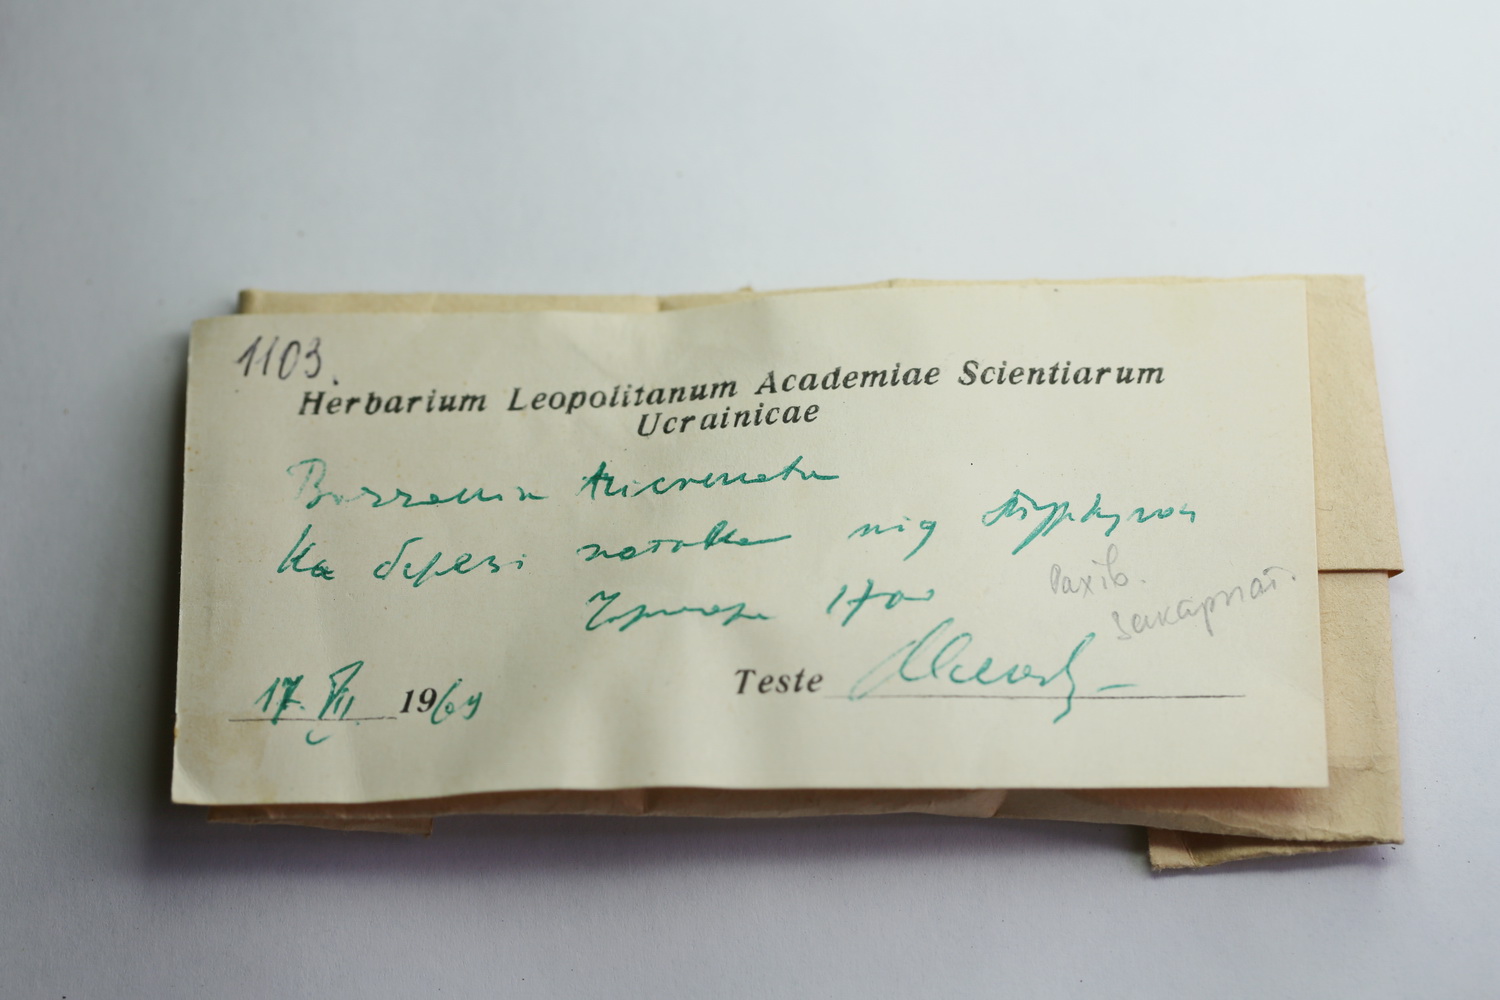 1103.
Herbarium Leopolitanum Academiae Scientiarum
Ucrainicae
Bazzania tricrenata
На березі потока під
1700
Рахів.
Закарпат.
17. VII 1969
Teste